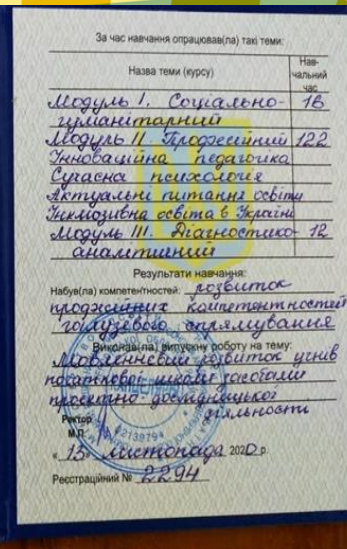 За час навчання опрацював(ла) такі теми:
Назва теми (курсу) Нав-
чальний
час
Модуль I. Соціально- 16
гуманітарний
Модуль II. Професійний 122
Інноваційна педагогіка
Сучасна психологія
Актуальні питання освіти
Інклюзивна освіта в Україні
Модуль III. Діагностико- 12
аналітичний
Результати навчання:
Набув(ла) компетентностей: розвиток
професійних компетентностей
галузевого спрямування
Виконав(ла) випускну роботу на тему:
Мовленнєвий розвиток учнів
початкової школи засобами
проєктно-дослідницької
діяльності
Ректор
М.П.
02139794
« 13 » листопада 2020 р.
Реєстраційний № 2294